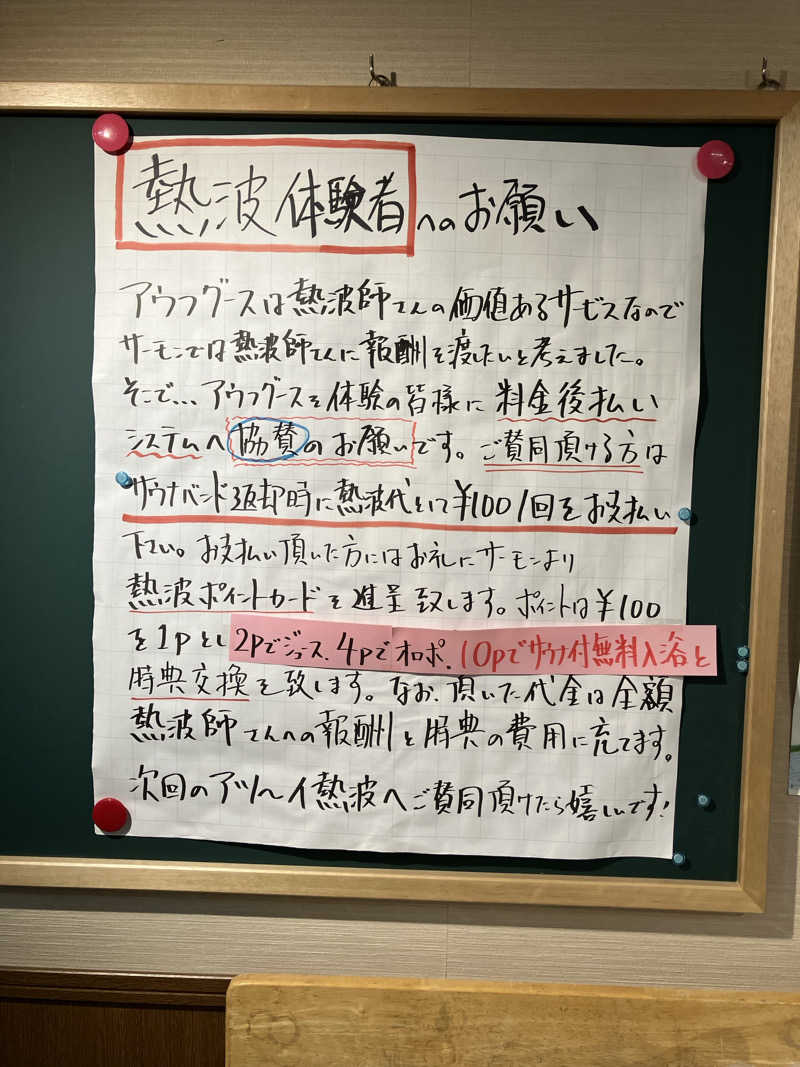 熱波体験者へのお願い
アウフグースは熱波師さんの価値あるサービスなので
サーモンでは熱波師さんに報酬を渡したいと考えました。
そこで...アウフグースを体験の皆様に料金後払い
システムへ協賛のお願いです。ご賛同頂ける方は
サウナバンド返却時に熱波代として¥100/1回をお支払い
下さい。お支払い頂いた方にはお礼にサーモンより
熱波ポイントカードを進呈致します。ポイントは¥100
を1pとし2Pでジュース、4Pでオロポ、10pでサウナ付無料入浴と
特典交換を致します。なお、頂いた代金は全額
熱波師さんへの報酬と特典の費用に充てます。
次回のアツゥ〜イ熱波へご賛同頂けたら嬉しいです!